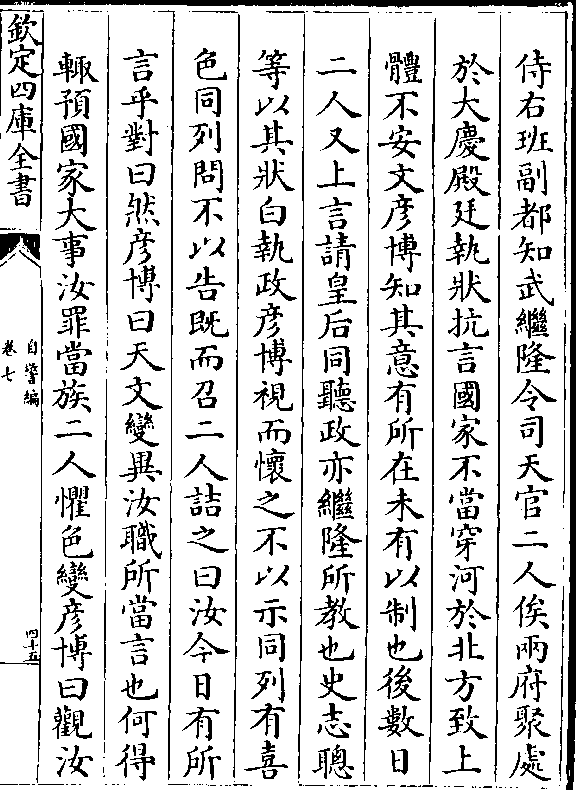 侍右班副都知武繼隆令司天官二人俟兩府聚處
於大慶殿廷執狀抗言國家不當穿河於北方致上
體不安文彦博知其意有所在未有以制也後數日
二人又上言請皇后同聽政亦繼隆所教也史志聰
等以其狀白執政彦博視而懷之不以示同列有喜
色同列問不以告既而召二人詰之曰汝今日有所
言乎對曰然彦博曰天文變異汝職所當言也何得
輙預國家大事汝罪當族二人懼色變彦博曰觀汝
欽定四庫全書
自警編
卷七
四十五